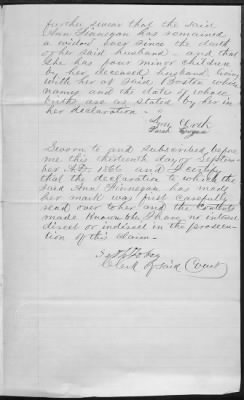 further swear that the said
Ann Finnegan has remained
a widow ever since the death
of her said husband - and that
she has four minor children
by her deceased husband living
with her at said Boston whose
names and the date of whose
births are as stated by her in
her declaration -
Sworn to and subscribed before
me this thirteenth day of Septem-
ber A.D. 1866 and I certify
that the declaration to which the
said Ann Finnegan has made
her mark was first carefully
read over to her and the contents
made known she I have no interest
direct or indirect in the prosecu-
tion of this claim.
Clerk of said Court